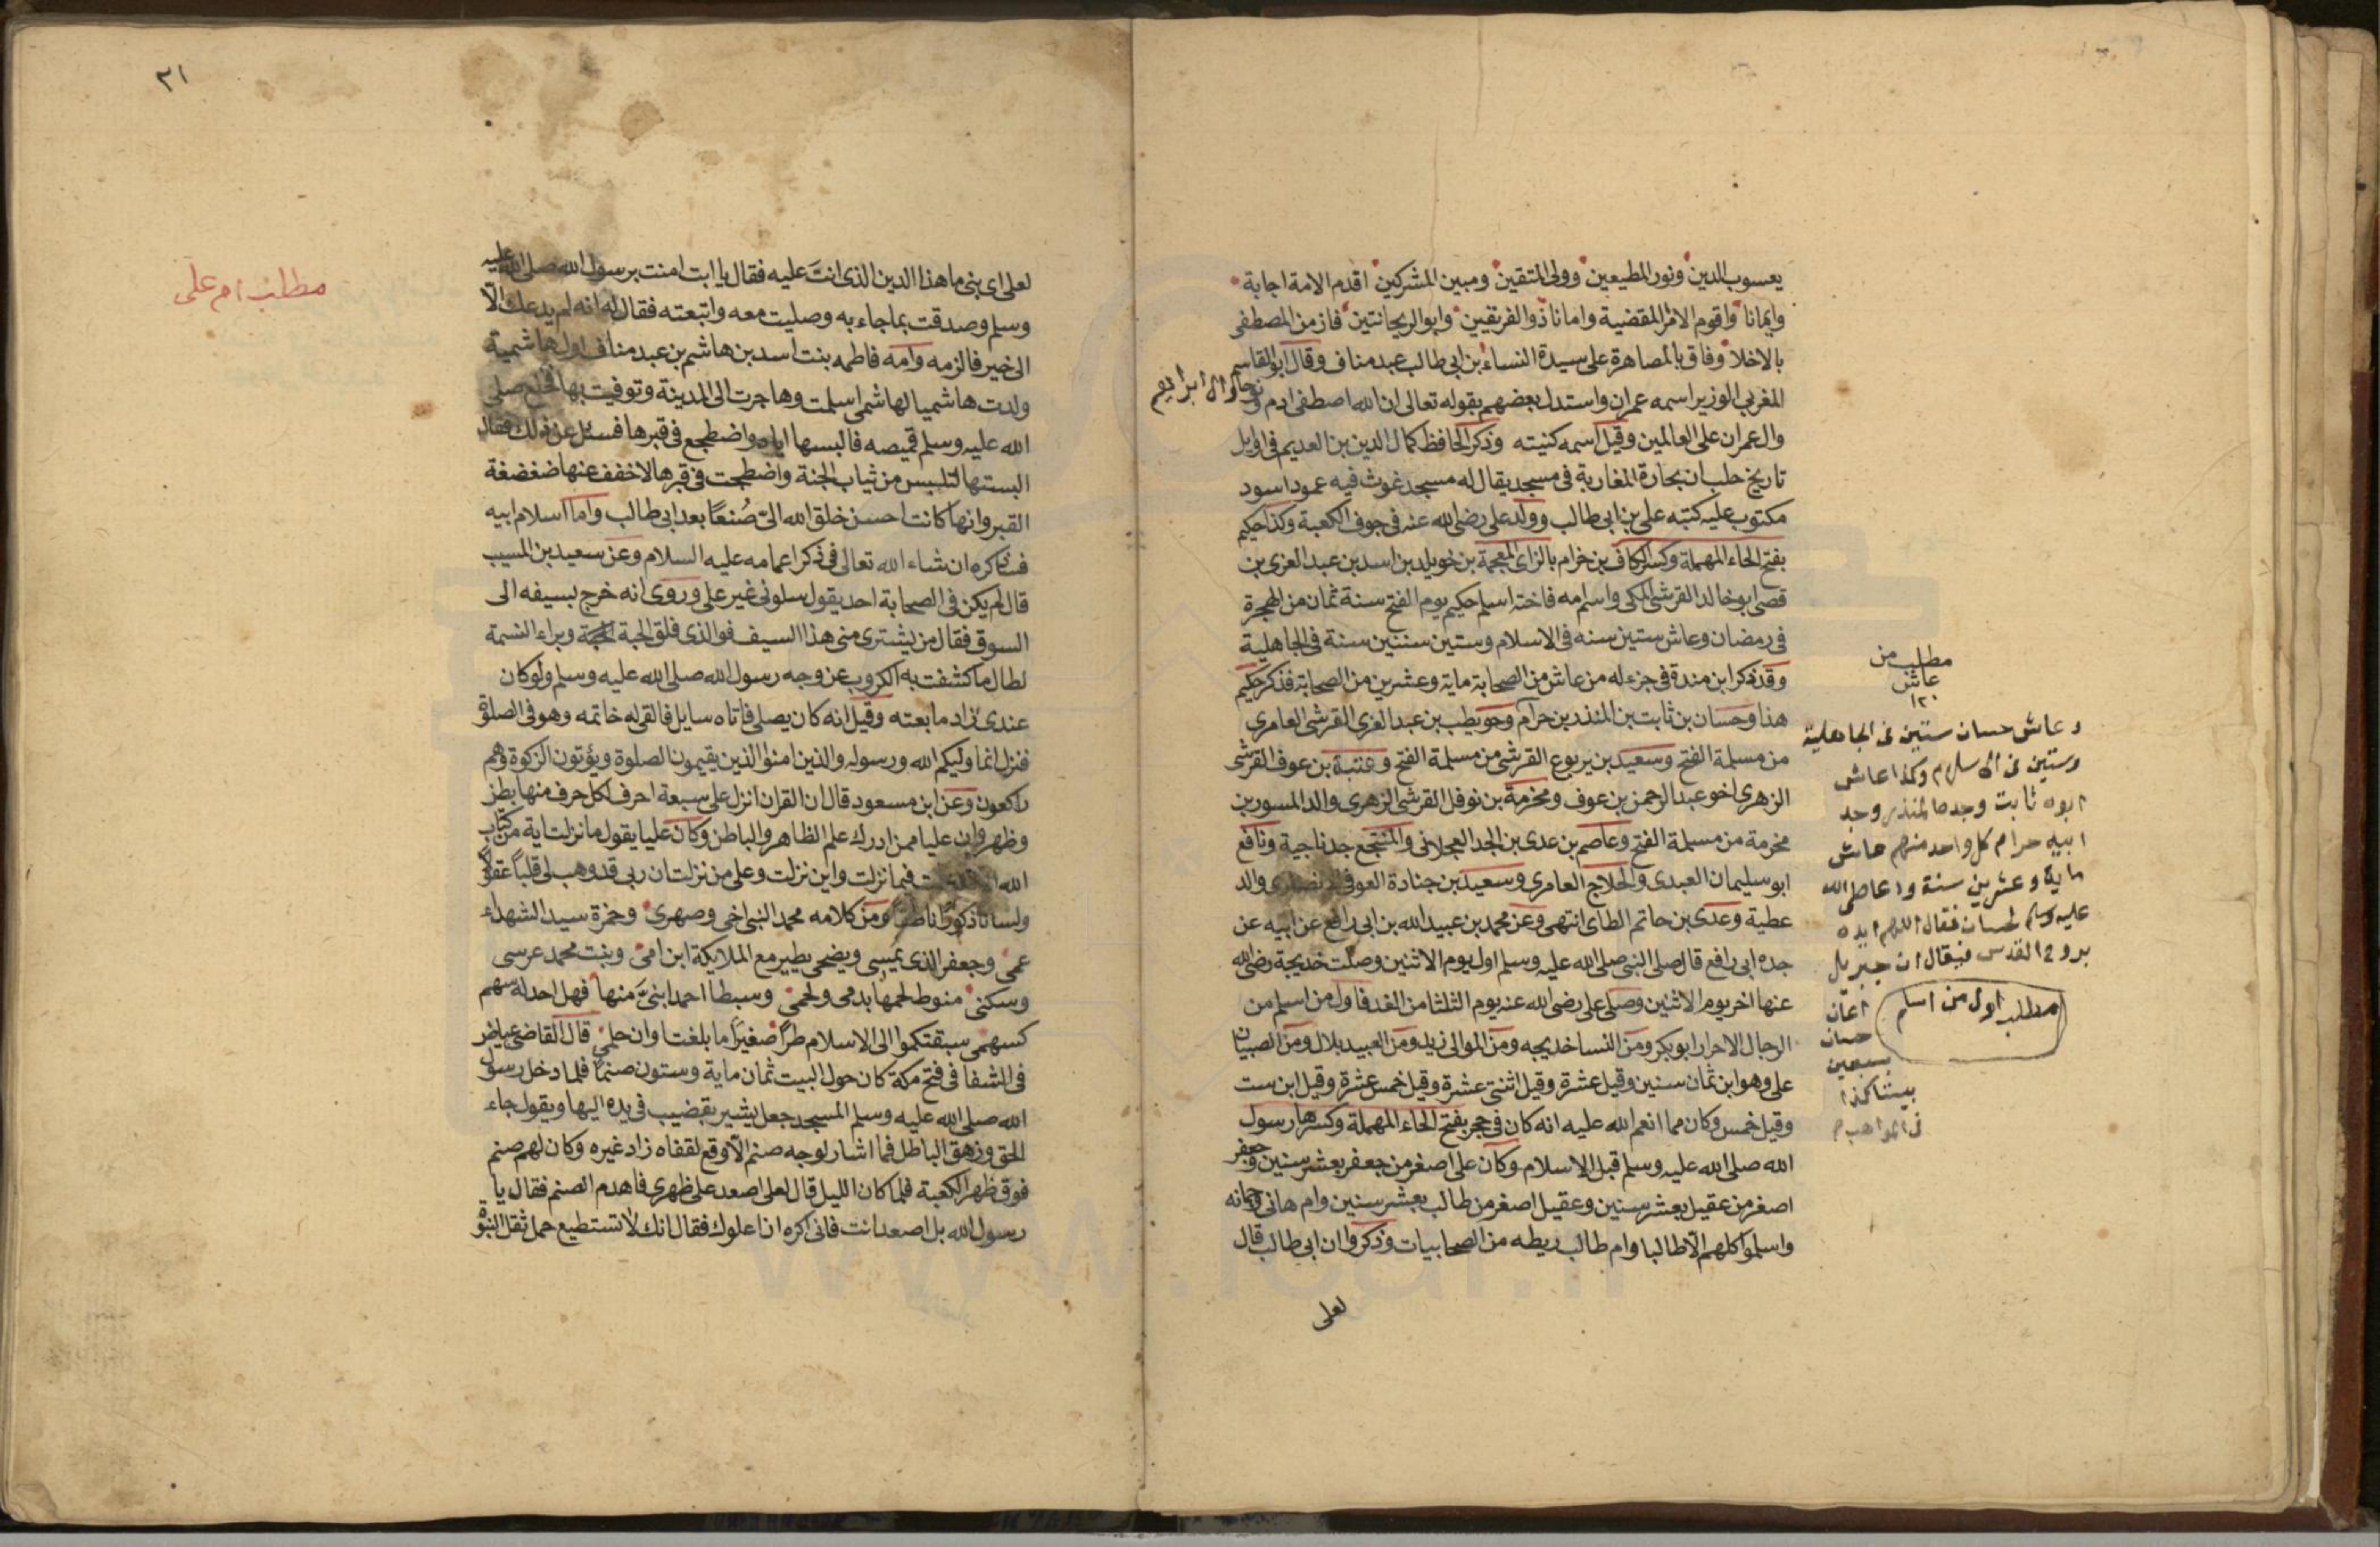 يعسوب الدين ونور المطيعين وولى المتقين ومبين المشركين اقدم الامة اجابة
وايمانا واقوم الامر المقضية وامانا ذو الفرنقين وابو الريحانتين فاز من المصطفى
بالاخلا وفاق بالمصاهرة على سيدة النساء بن ابى طالب عبد مناف وقال ابو القاسم
المغربى الوزير اسمه عمران واستدل بعضهم بقوله تعالى ان الله اصطفى ادم ونوحا وال ابراهيم
وال عمران على العالمين وقيل اسمه كنيته وذكر الحافظ كمال الدين بن العديم فى اوايل
تاريخ حلب ان بحارة المغاربة فى مسجد يقال له مسجد غوث فيه عمود اسود
مكتوب عليه كتبه على بن ابى طالب وولد على رضى الله عنه فى جوف الكعبة وكذا حكيم
بفتح الحاء المهملة وكسر الكاف بن خرام بالزاى المعجمة بن خويلد بن اسد بن عبد العزى بن
قصى ابو خالد القرشى المكى واسم امه فاخته اسلم حكيم يوم الفتح سنة ثمان من الهجرة
فى رمضان وعاش ستين سنه فى الاسلام وستين سننين سنة فى الجاهلية
وقد ذكر ابن مندة فى جزء له من عاش من الصحابة ماية وعشرين من الصحابة فذكر حكيم
هذا وحسان بن ثابت بن المنذر بن حرام وحويطب بن عبد العزى القرشى العامرى
من مسلمة الفتح وسعيد بن يربوع القرشى من مسلمة الفتح وعتبة بن عوف القرشى
الزهرى اخو عبد الرحمن بن عوف ومخرمة بن نوفل القرشى الزهرى والد المسور بن
مخرمة من مسلمة الفتح وعاصم بن عدى بن الجد العجلانى والمنتجع جد ناجية ونافع
ابو سليمان العبدى والحلاج العامرى وسعيد بن جنادة العوفى الانصارى والد
عطية وعدى بن حاتم الطاى انتهى وعن محمد بن عبيد الله بن ابى رافع عن ابيه عن
جده ابى رافع قال صلى النبى صلى الله عليه وسلم اول يوم الاثنين وصلت خديجة رضى الله
عنها اخر يوم الاثنين وصلى على رضى الله عنه يوم الثلثا من الغد فاول من اسلم من
الرجال الاحرار ابو بكر ومن النسا خديجه ومن الموالى زيد ومن العبيد بلال ومن الصبيان
على وهو ابن ثمان سنين وقيل عشرة وقيل اثنتى عشرة وقيل خمس عشرة وقيل ابن ست
وقيل خمس وكان مما انعم الله عليه انه كان فى حجر بفتح الحاء المهملة وكسرها رسول
الله صلى الله عليه وسلم قبل الاسلام وكان على اصغر من جعفر بعشر سنين وجعفر
اصغر من عقيل بعشر سنين وعقيل اصغر من طالب بعشر سنين وام هانى وجمانه
واسلموا كلهم الا طالبا وام طالب ريطه من الصحابيات وذكروا ان ابى طالب قال
لعلى
مطلب من
عاش
١٢٠
وعاش حسان ستين فى الجاهلية
وستين فى الاسلام وكذا عاش
ابوه ثابت وجده المنذر وجد
ابيه حرام كل واحد منهم عاش
ماية وعشرين سنة ودعا صلى الله
عليه وسلم لحسان فقال اللهم ايده
بروح القدس فيقال ان جبريل
اعان
حسان
بسبعين
بيتا كذا
فى المواهب م
مطلب اول من اسلم
٣١
مطلب ام على
لعلى اى بنى ما هذا الدين الذى انت عليه فقال يا ابت امنت برسول الله صلى الله عليه
وسلم وصدقت بما جاء به وصليت معه واتبعته فقال له انه لم يدعك الا
الى خير فالزمه وامه فاطمه بنت اسد بن هاشم بن عبد مناف اول هاشمية
ولدت هاشميا لهاشمى اسلمت وهاجرت الى المدينة وتوفيت بها فخلع صلى
الله عليه وسلم قميصه فالبسها اياه واضطجع فى قبرها فسئل عن ذلك فقال
البستها لتلبس من ثياب الجنة واضطجعت فى قبرها لاخفف عنها ضغضغة
القبر وانها كانت احسن خلق الله الى صُنعًا بعد ابى طالب واما اسلام ابيه
فسنذكره ان شاء الله تعالى فى ذكر اعمامه عليه السلام وعن سعيد بن المسيب
قال لم يكن فى الصحابة احد يقول سلونى غير على وروى انه خرج بسيفه الى
السوق فقال من يشترى منى هذا السيف فوالذى فلق الحبة وبراء النسمة
لطال ما كشفت به الكروب عن وجه رسول الله صلى الله عليه وسلم ولو كان
عندى زاد ما بعته وقيل انه كان يصلى فاتاه سايل فالقى له خاتمه وهو فى الصلوة
فنزل انما وليكم الله ورسوله والذين امنوا الذين يقيمون الصلوة ويؤتون الزكوة وهم
راكعون وعن ابن مسعود قال ان القران انزل على سبعة احرف لكل حرف منها بطن
وظهر وان عليا ممن ادرك علم الظاهر والباطن وكان عليا يقول ما نزلت اية من كتاب
الله فيما نزلت واين نزلت وعلى من نزلت ان ربى قد وهب لى قلبا عقولا
ولسانا ذكورا ناطقا ومن كلامه محمد النبى اخى وصهرى وحمزة سيد الشهداء
عمى وجعفر الذى يمسى ويضحى يطير مع الملايكة ابن امى وبنت محمد عرسى
وسكنى منوط لحمها بدمى ولحمى وسبطا احمد ابنىّ منها فهل احد له سهم
كسهمى سبقتكموا الى الاسلام طرا صغيرا ما بلغت اوان حلمى قال القاضى عياض
فى الشفا فى فتح مكة كان حول البيت ثمان ماية وستون صنما فلما دخل رسول
الله صلى الله عليه وسلم المسجد جعل يشير بقضيب فى يده اليها ويقول جاء
الحق وزهق الباطل فما اشار لوجه صنم الا وقع لقفاه زاد غيره وكان لهم صنم
فوق ظهر الكعبة فلما كان الليل قال لعلى اصعد على ظهرى فاهدم الصنم فقال يا
رسول الله بل اصعد انت فانى اكره ان اعلوك فقال انك لا تستطيع حمل ثقل النبوة